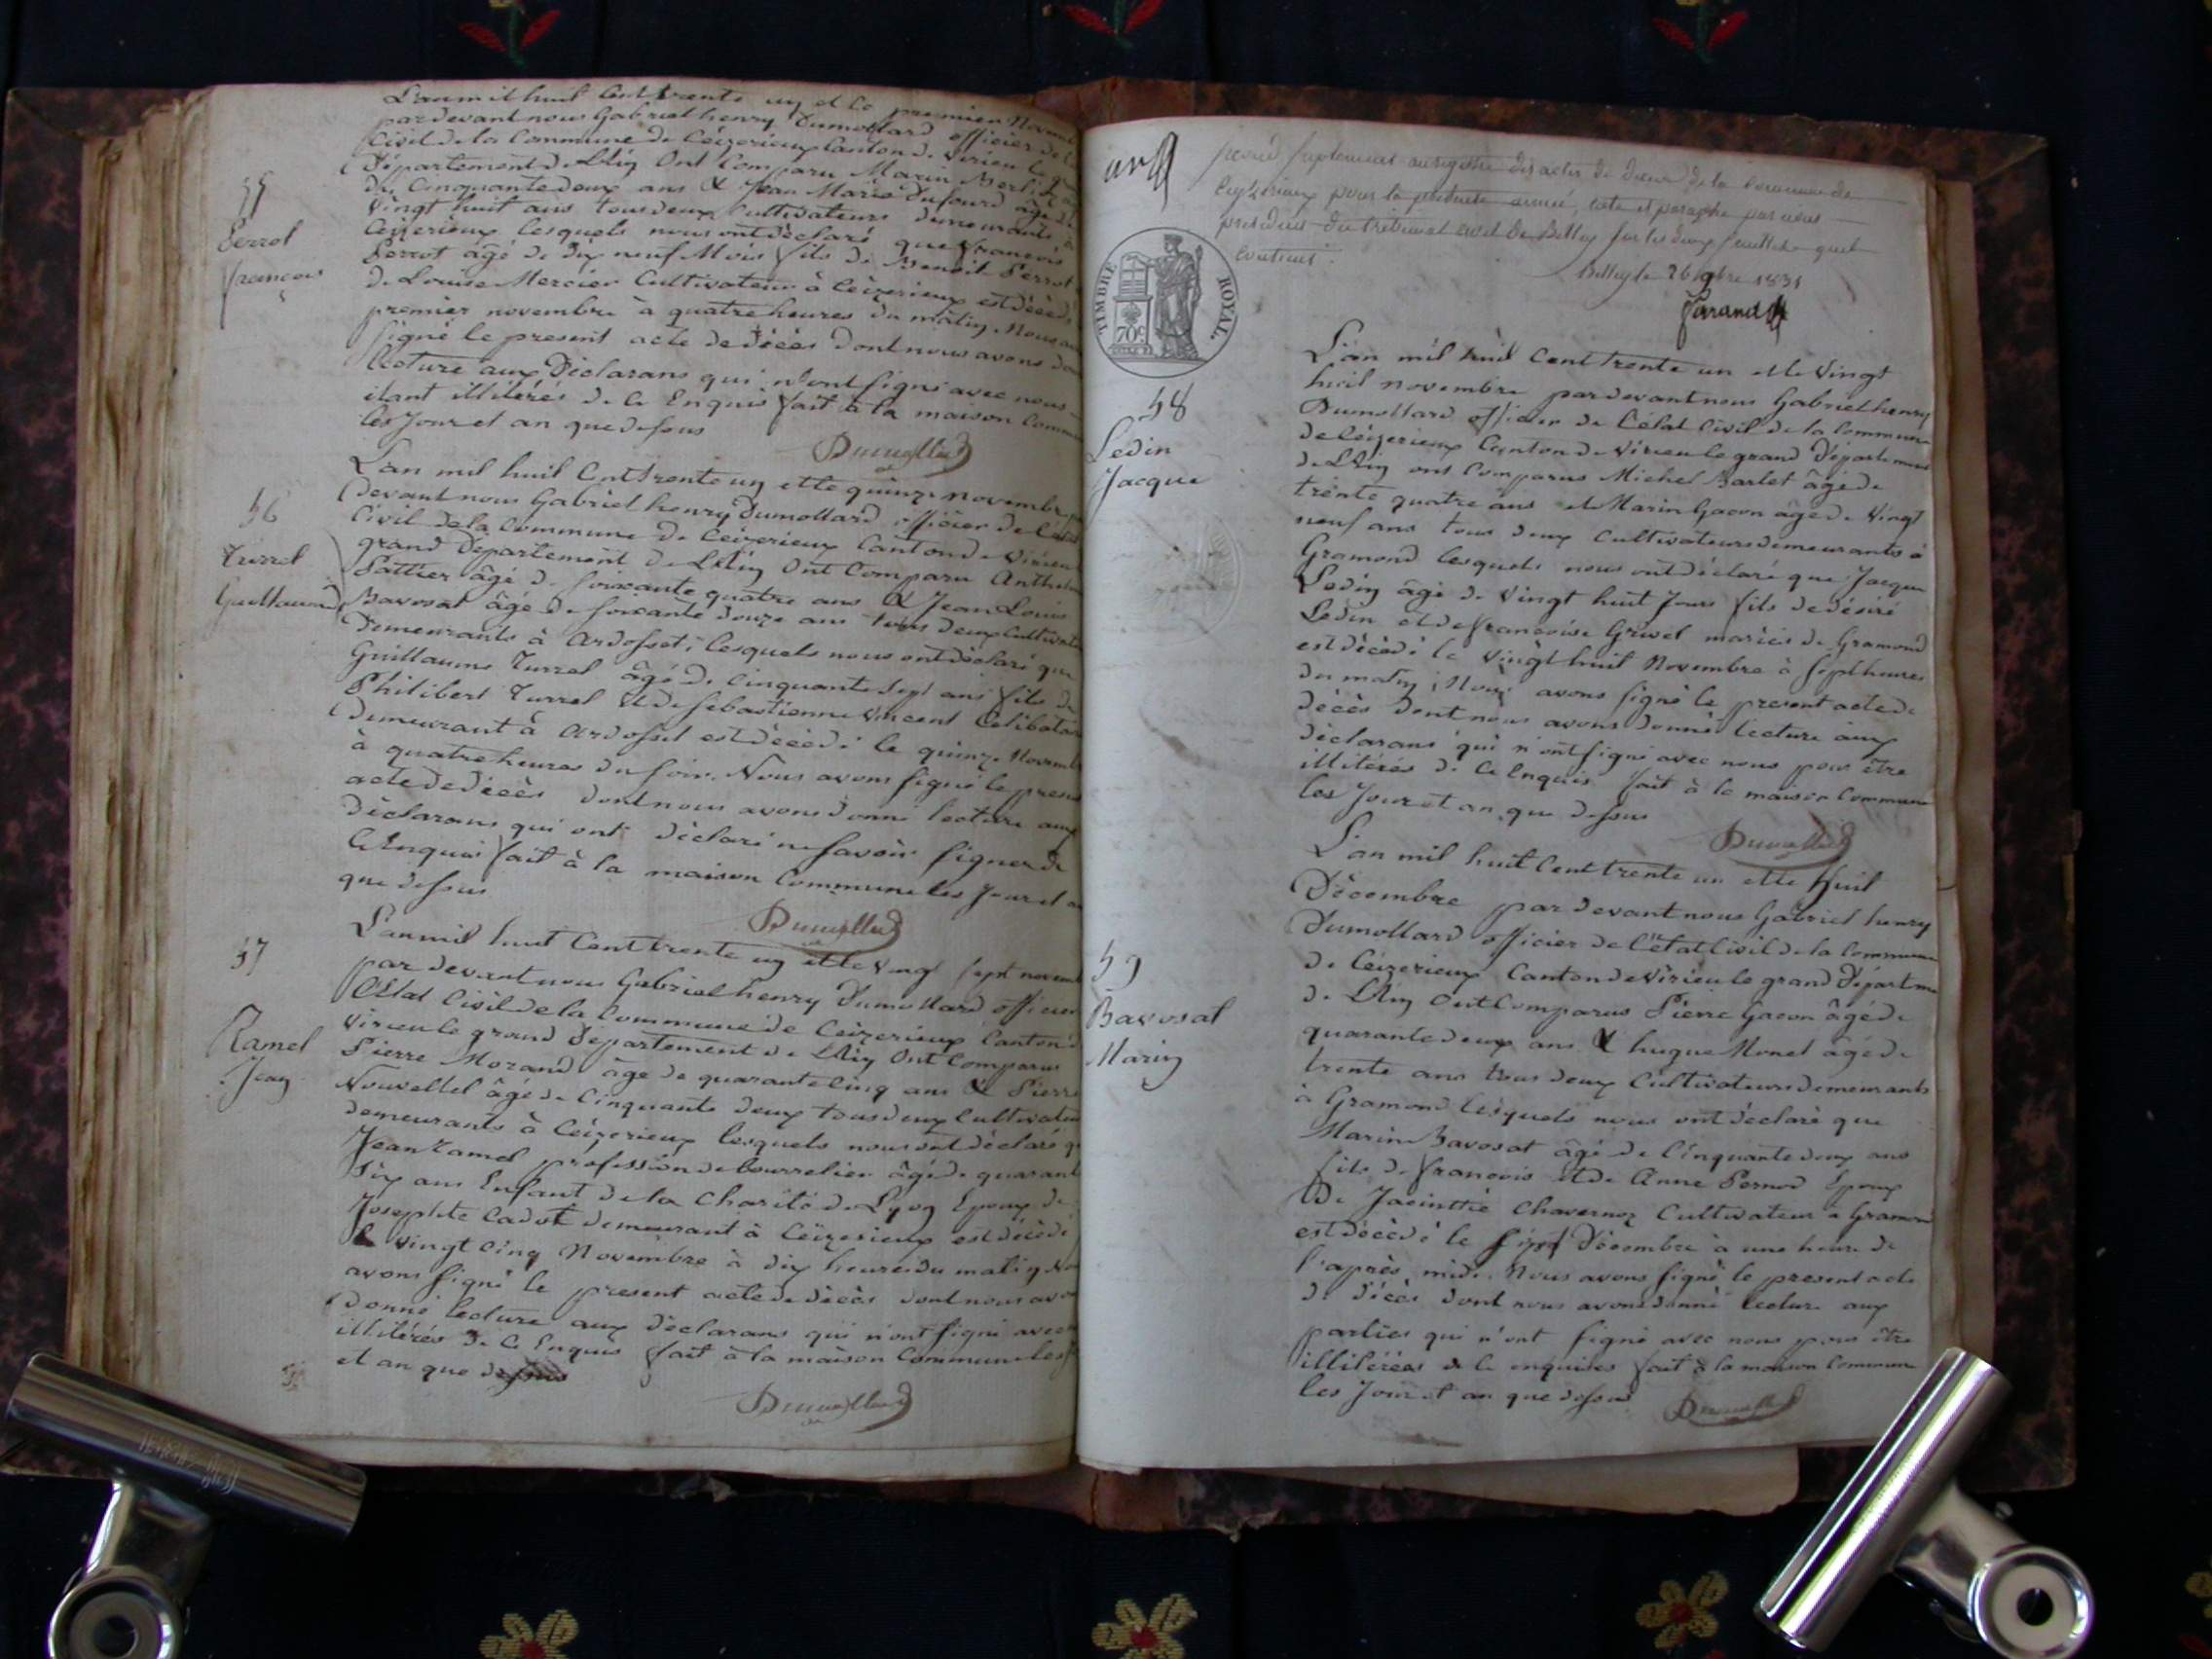 L'an mil huit Cent trente un et le premier Novem
par devant nous Gabriel henry Dumollard officier de l'
Civil de la Commune de Ceizerieux Canton de Virieu le gr
Département de L'Ain Ont Comparu Marin
de Cinquante deux ans & Jean Marie Dufourd âgé de
Vingt huit ans tous deux Cultivateurs demeurants à
Ceizerieux lesquels nous ont déclaré que francois
Perrot âgé de dix neuf Mois fils de Benoit Perrot
de Louise Mercier Cultivateur à Ceizerieux est décédé
premier novembre à quatre heures du matin. Nous av
signé le present acte de décès dont nous avons do
lecture aux Déclarans qui n'ont signé avec nous
étant illitérés de Ce Enquis fait à la maison Commu
les Jour et an que dessus
Dumollard
55
Perrot
francois
L'an mil huit Cent trente un et le quinze novembre
devant nous Gabriel henry Dumollard officier de l'état
Civil de la Commune de Ceizerieux Canton de Virieu
grand Département de L'Ain Ont Comparu Anthelme
Pattier âgé de soixante quatre ans & Jean Louis
Bavosat âgé de soixante douze ans tous deux Cultivate
demeurants à Ardosset; lesquels nous ont déclaré que
Guillaume Turrel âgé de Cinquante sept ans fils de
Philibert Turrel & de Sebastienne Vincent Célibatai
demeurant à Ardosset est décédé le quinze Novemb
à quatre heures du soir. Nous avons signé le presen
acte de décès dont nous avons donné lecture aux
Déclarans qui ont déclaré ne savoir signer de
Ce Enquis fait à la maison Commune les Jour et a
que dessus
Dumollard
56
Turrel
Guillaume
L'an mil huit Cent trente un et le vingt sept novemb
par devant nous Gabriel henry Dumollard officier
l'Etat Civil de la Commune de Ceizerieux Canton d
Virieu le grand Département de L'Ain Ont Comparus
Pierre Morand âgé de quarante Cinq ans & Pierre
Nouvellet âgé de Cinquante deux tous deux Cultivateu
demeurants à Ceizerieux lesquels nous ont déclaré q
Jean Ramel profession de bourrelier âgé de quarante
Six ans Enfant de la Charité de Lyon Epoux de
Josephte Cadot demeurant à Ceizerieux est décédé
le vingt Cinq Novembre à dix heures du matin No
avons signé le present acte de décès dont nous avo
donné lecture aux Déclarans qui n'ont signé avec
illitérés de Ce Enquis fait à la maison Commune les
et an que dessus
Dumollard
57
Ramel
Jean
second supplement au registre des actes de deces de la Commune de
Ceyzerieux pour la presente année, coté et paraphé par nous
president du tribunal civil de Belley sur les deux feuillets quil
contient.
Belley le 26 9bre 1831
Parand
TIMBRE ROYAL.
70c
L'an mil huit Cent trente un et le Vingt
huit novembre par devant nous Gabriel henry
Dumollard officier de l'état Civil de la Commune
de Ceizerieux Canton de Virieu le grand Département
de L'Ain ont Comparus Michel Barlet âgé de
trente quatre ans et Marin Gacon âgé de Vingt
neuf ans tous deux Cultivateurs demeurants à
Gramond lesquels nous ont déclaré que Jacque
Ledin âgé de Vingt huit Jours fils de désiré
Ledin et de francoise Grivel mariés de Gramond
est décédé le Vingt huit Novembre à sept heures
du matin; Nous avons signé le present acte de
décès dont nous avons donné lecture aux
déclarans qui n'ont signé avec nous pour être
illitérés de Ce Enquis fait à la maison Commune
les Jour et an que dessus
Dumollard
58
Ledin
Jacque
L'an mil huit Cent trente un et le huit
Décembre par devant nous Gabriel henry
Dumollard officier de l'état Civil de la Commune
de Ceizerieux Canton de Virieu le grand Départme
de L'Ain Ont Comparus Pierre Gacon âgé de
quarante deux ans & hugue Monet âgé de
trente ans tous deux Cultivateurs demeurants
à Gramond lesquels nous ont déclaré que
Marin Bavosat âgé de Cinquante deux ans
fils de francois et de Anne Pernod Epoux
de Jacinthe Chavernoz Cultivateur à Gramond
est décédé le sept Décembre à une heure de
l'après midi. Nous avons signé le present acte
de décès dont nous avons donné lecture aux
parties qui n'ont signé avec nous pour être
illitérés de ce enquises fait à la maison Commune
les Jour et an que dessus
Dumollard
59
Bavosat
Marin